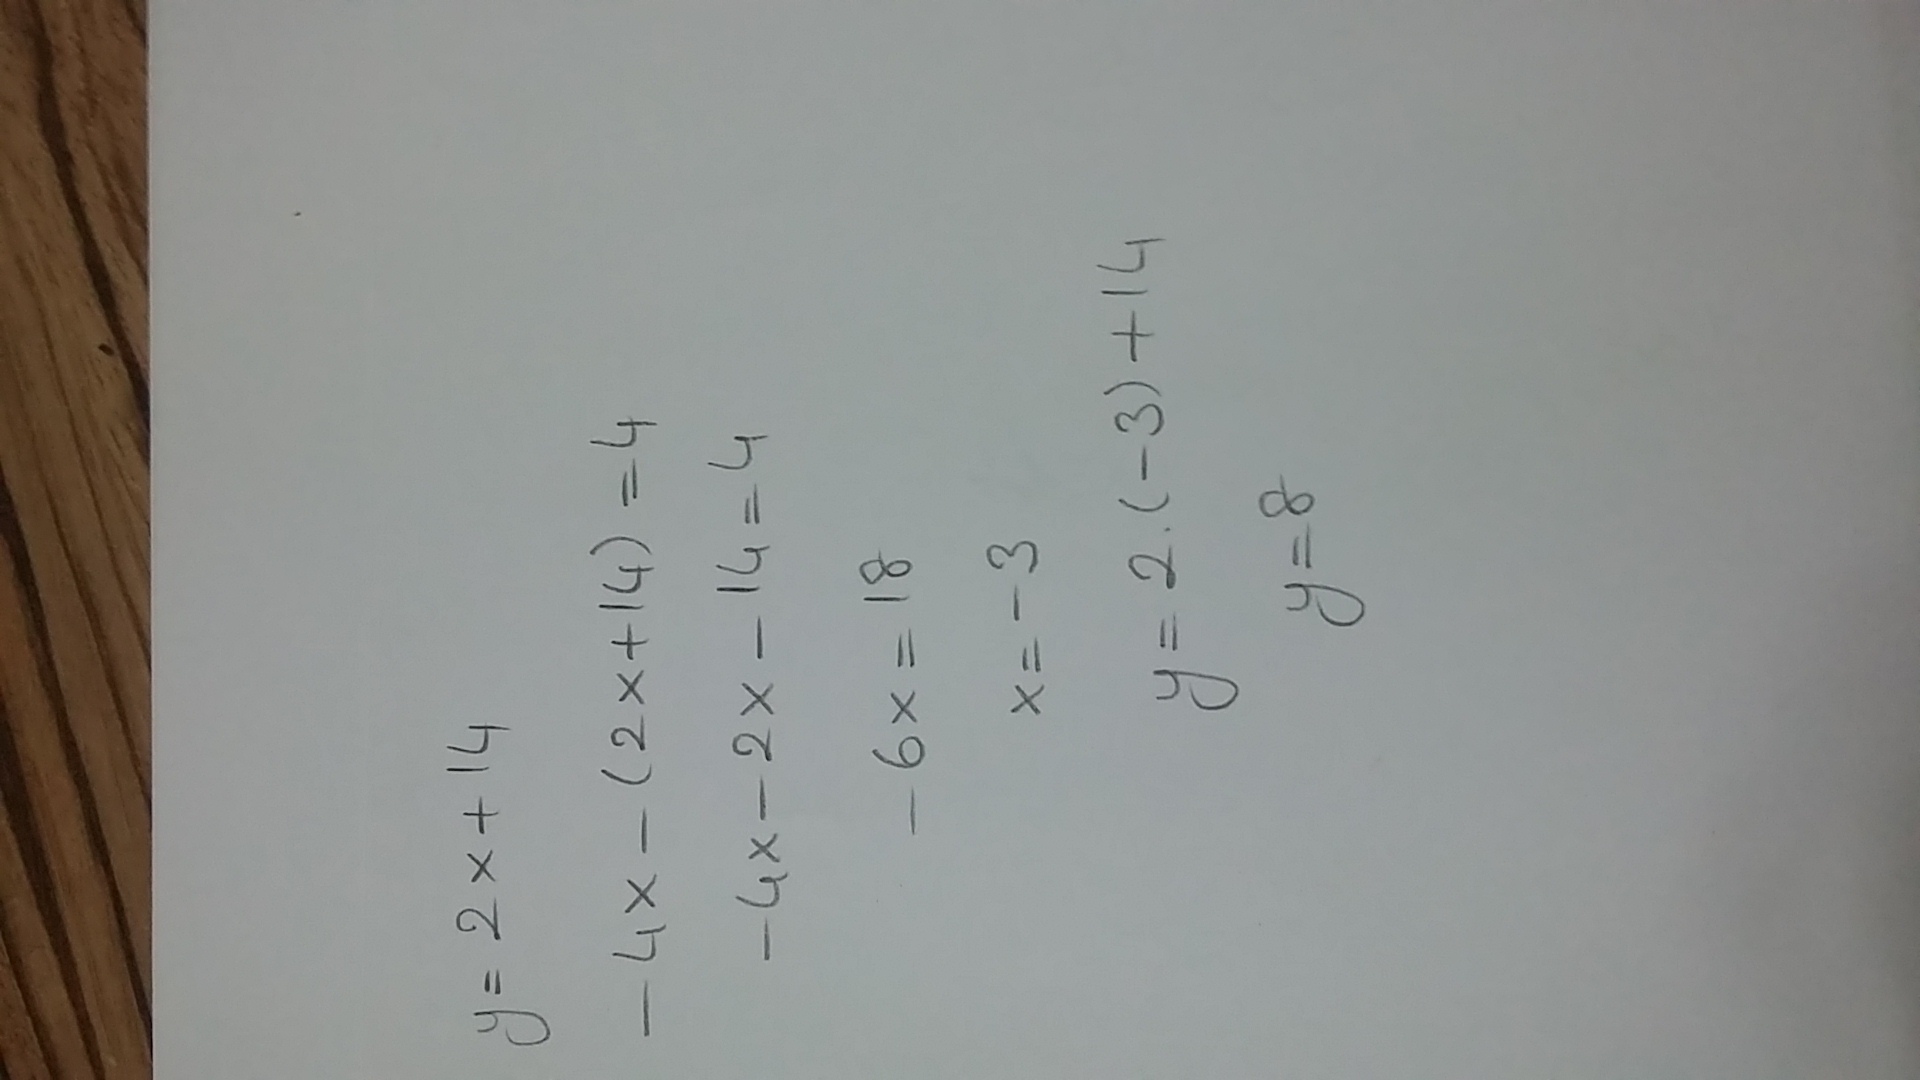 y = 2x + 14
- 4x - (2x + 14) = 4
- 4x - 2x - 14 = 4
- 6x = 18
x = - 3
y = 2 . (-3) + 14
y = 8